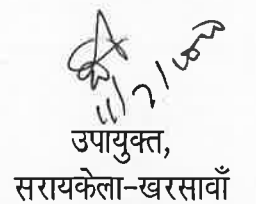 उपायुक्त,
सरायकेला-खरसावाँ